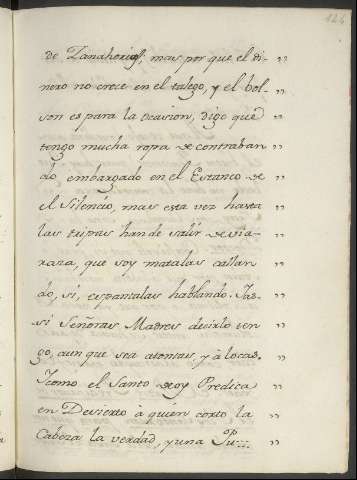 124
de Zanahorias, mas por que el di-
nero no crece en el talego, y el bol-
son es para la ocasion, digo que
tengo mucha ropa de contraban
do, embargado en el Estanco de
el Silencio, mas esta vez hasta
las tripas han de salir de via-
raza, que soy matalas callan
do, si, espantalas hablando. Ias-
si Señoras Madres decirlo ten
go, aun que sea atontas, y à locas.
Icomo el Santo de oy Predica
en Desierto a quien corto la
Cabeza la verdad, y una Pu...